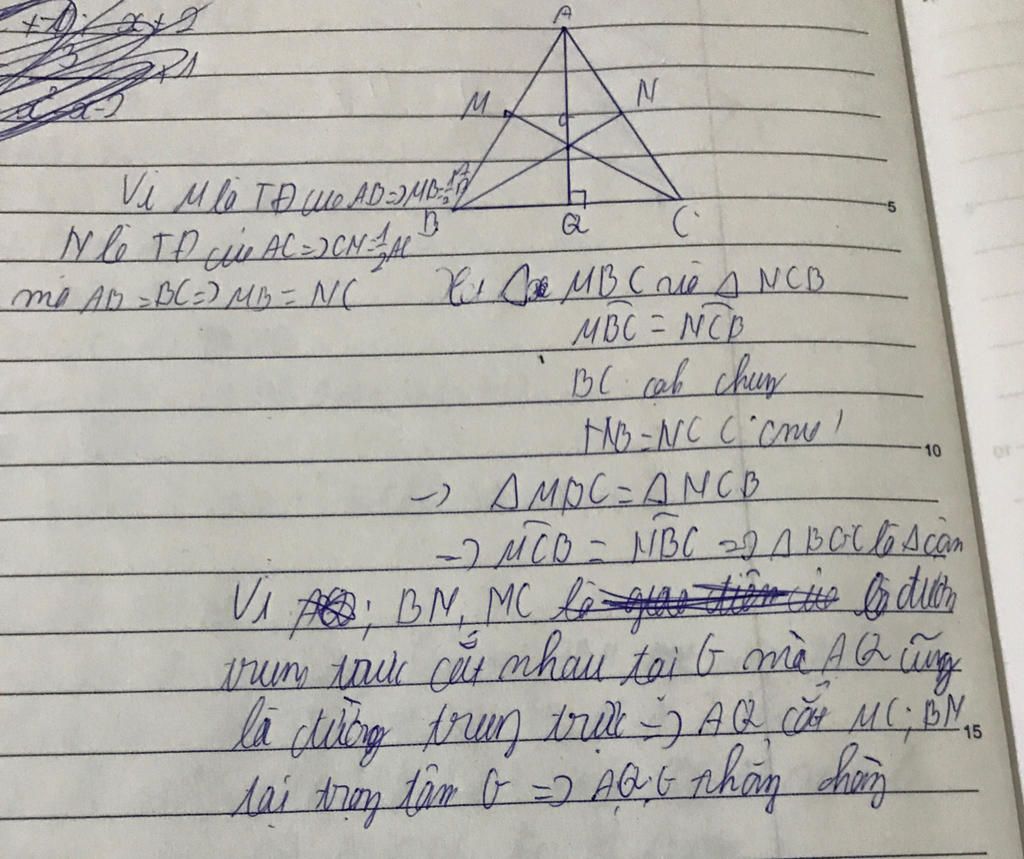 A
M
N
G
B
Q
C
5
Vì M là TĐ của AB => MB = 1/2 AB
N là TĐ của AC => CN = 1/2 AC
mà AB = BC => MB = NC
Xét Δ MBC và Δ NCB
MBC = NCB
BC cạh chung
MB = NC ( cmt )
10
-> Δ MBC = Δ NCB
-> MCB = NBC => Δ BGC là Δ cân
Vì ; BN, MC là là đườn
trun trực cắt nhau tại G mà AQ cũng
là đường trung trực => AQ cắt MC; BN
15
tại trọng tâm G => AQ, G thẳng hàng